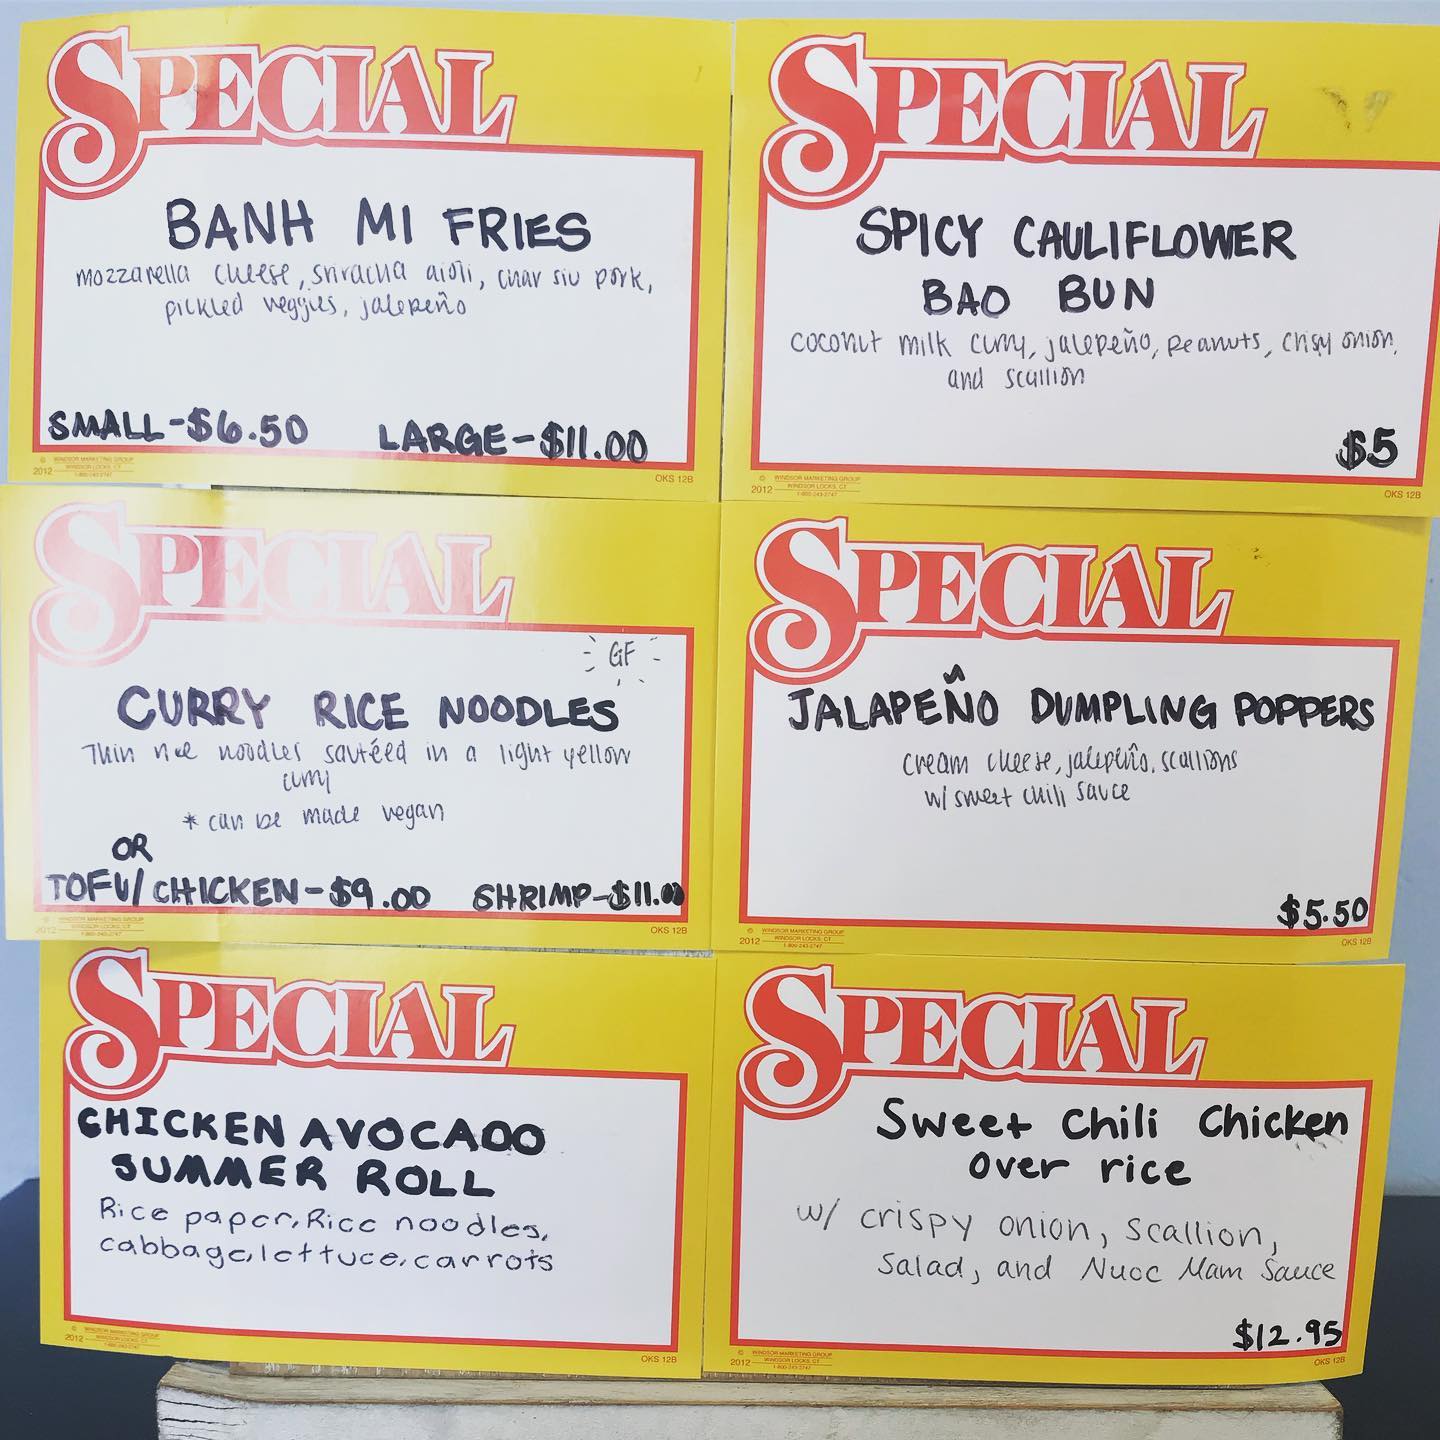 SPECIAL
BANH MI FRIES
mozzarella cheese, sriracha aioli, char siu pork,
pickled veggies, jalepeño
SMALL-$6.50 LARGE-$11.00
© WINDSOR MARKETING GROUP
2012 WINDSOR LOCKS, CT
1-800-243-2747
OKS 12B
SPECIAL
SPICY CAULIFLOWER
BAO BUN
coconut milk curry, jalepeño, peanuts, crispy onion,
and scallion
$5
© WINDSOR MARKETING GROUP
2012 WINDSOR LOCKS, CT
1-800-243-2747
OKS 12B
SPECIAL
GF
CURRY RICE NOODLES
Thin rice noodles sautéed in a light yellow
curry
* can be made vegan
OR
TOFU/CHICKEN-$9.00 SHRIMP-$11.00
© WINDSOR MARKETING GROUP
2012 WINDSOR LOCKS, CT
1-800-243-2747
OKS 12B
SPECIAL
JALAPEÑO DUMPLING POPPERS
cream cheese, jalepeño, scallions
w/ sweet chili sauce
$5.50
© WINDSOR MARKETING GROUP
2012 WINDSOR LOCKS, CT
1-800-243-2747
OKS 12B
SPECIAL
CHICKEN AVOCADO
SUMMER ROLL
Rice paper, Rice noodles,
cabbage, lettuce, carrots
© WINDSOR MARKETING GROUP
2012 WINDSOR LOCKS, CT
1-800-243-2747
OKS 12B
SPECIAL
Sweet Chili Chicken
over rice
w/ crispy onion, scallion,
salad, and Nuoc Mam Sauce
$12.95
© WINDSOR MARKETING GROUP
2012 WINDSOR LOCKS, CT
1-800-243-2747
OKS 12B